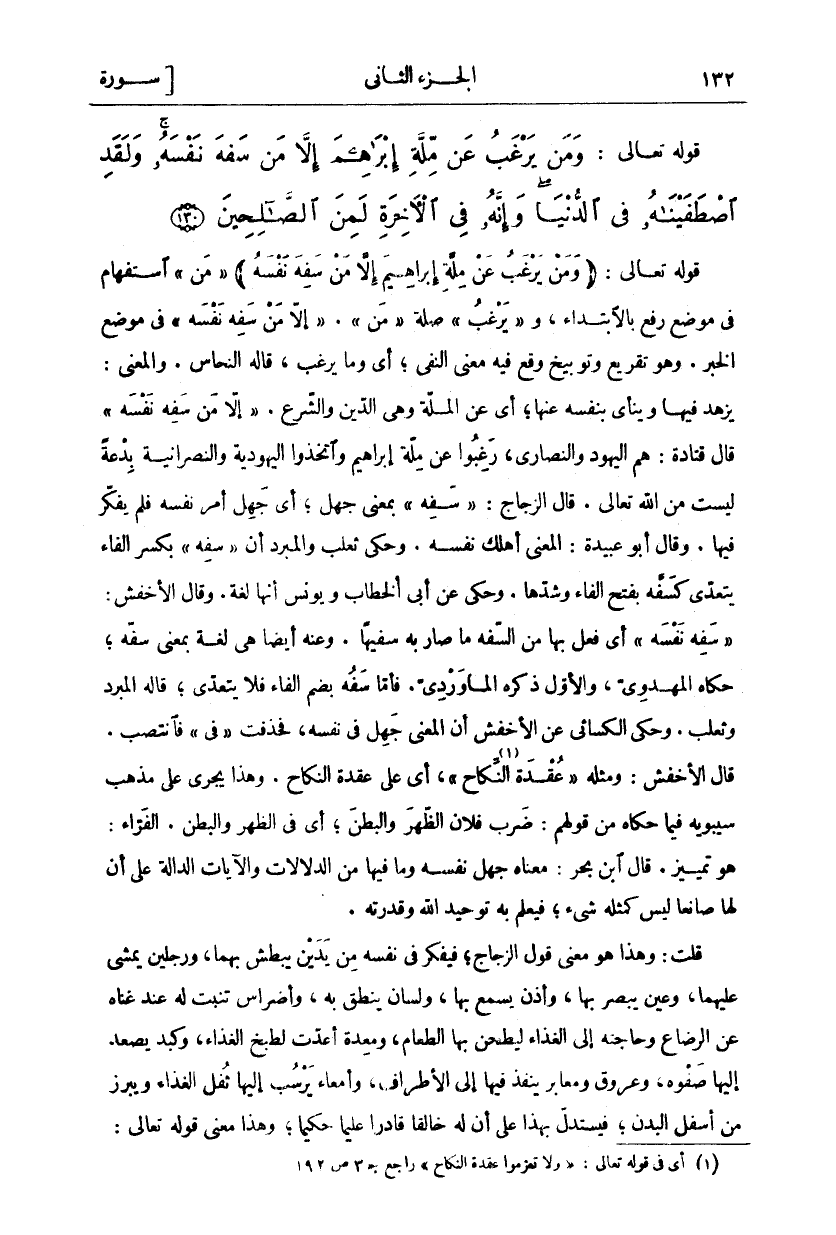 ١٣٢ الجزء الثانى [ سورة
قوله تعالى : وَمَن يَرْغَبُ عَن مِّلَّةِ إِبْرَٰهِـۧمَ إِلَّا مَن سَفِهَ نَفْسَهُۥۚ وَلَقَدِ
ٱصْطَفَيْنَٰهُ فِى ٱلدُّنْيَاۖ وَإِنَّهُۥ فِى ٱلْأَخِرَةِ لَمِنَ ٱلصَّٰلِحِينَ ﴿١٣٠﴾
قوله تعالى : ﴿ وَمَنْ يَرْغَبُ عَنْ مِلَّةِ إبراهِيمَ إِلَّا مَنْ سَفِهَ نَفْسَهُ ﴾ « مَن » ٱستفهام
فى موضع رفع بالٱبتداء ، و « يَرْغَبُ » صلة « مَن » . « إلّا مَنْ سَفِه نَفْسَه » فى موضع
الخبر . وهو تقريع وتوبيخ وقع فيه معنى النفى ؛ أى وما يرغب ، قاله النحاس . والمعنى :
يزهد فيها وينأى بنفسه عنها؛ أى عن الملّة وهى الدين والشّرع . « إلّا مَن سَفِه نَفْسَه »
قال قتادة : هم اليهود والنصارى، رَغِبُوا عن مِلّة إبراهيم وٱتخذوا اليهودية والنصرانية بِدْعةً
ليست من الله تعالى . قال الزجاج : « سَفِه » بمعنى جهل ؛ أى جَهِل أمر نفسه فلم يفكّر
فيها . وقال أبو عبيدة : المعنى أهلك نفسه . وحكى ثعلب والمبرد أن « سفِه » بكسر الفاء
يتعدّى كَسَفّه بفتح الفاء وشدّها . وحكى عن أبى الخطاب ويونس أنها لغة. وقال الأخفش:
« سَفِه نَفْسَه » أى فعل بها من السّفه ما صار به سفيها . وعنه أيضا هى لغة بمعنى سفّه ؛
حكاه المهدوىّ ، والأوّل ذكره الماوَرْدِىّ. فأمّا سَفُه بضم الفاء فلا يتعدّى ؛ قاله المبرد
وثعلب . وحكى الكسائى عن الأخفش أن المعنى جَهِل فى نفسه، فحذفت « فى » فٱنتصب .
قال الأخفش : ومثله « عُقْدَة النِّكَاح »(١)، أى على عقدة النكاح . وهذا يجرى على مذهب
سيبويه فيما حكاه من قولهم : ضَرب فلان الظّهرَ والبطنَ ؛ أى فى الظهر والبطن . الفرّاء :
هو تمييز . قال ٱبن بحر : معناه جهل نفسه وما فيها من الدلالات والآيات الدالة على أن
لها صانعا ليس كمثله شىء ؛ فيعلم به توحيد الله وقدرته .
قلت: وهذا هو معنى قول الزجاج؛ فيفكر فى نفسه مِن يَدَيْن يبطش بهما، ورجلين يمشى
عليهما، وعين يبصر بها ، وأذن يسمع بها ، ولسان ينطق به ، وأضراس تنبت له عند غناه
عن الرضاع وحاجته إلى الغذاء ليطحن بها الطعام، ومعِدة أعدّت لطبخ الغذاء، وكبد يصعد
إليها صَفْوه، وعروق ومعابر ينفذ فيها إلى الأطراف، وأمعاء يَرْسُب إليها ثُفل الغذاء ويبرز
من أسفل البدن ؛ فيستدلّ بهذا على أن له خالقا قادرا عليما حكيما ؛ وهذا معنى قوله تعالى :
(١) أى فى قوله تعالى : « ولا تعزموا عقدة النكاح » راجع جـ ٣ ص ١٩٢